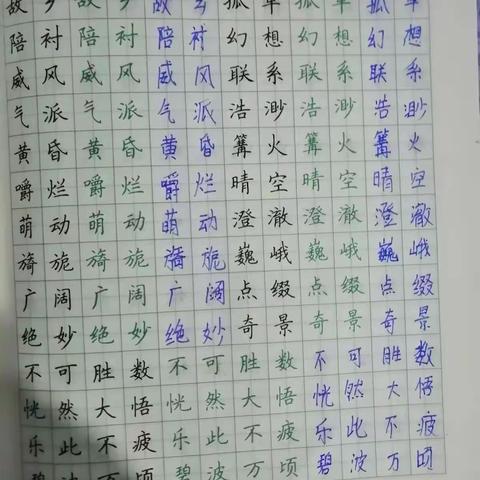 故乡故乡故乡孤单孤单孤单
陪衬陪衬陪衬幻想幻想幻想
威风威风威风联系联系联系
气派气派气派浩渺浩渺浩渺
黄昏黄昏黄昏篝火篝火篝火
嚼烂嚼烂嚼烂晴空晴空晴空
萌动萌动萌动澄澈澄澈澄澈
旖旎旖旎旖旎巍峨巍峨巍峨
广阔广阔广阔点缀点缀点缀
绝妙绝妙绝妙奇景奇景奇景
不可胜数不可胜数不可胜数
恍然大悟恍然大悟恍然大悟
乐此不疲乐此不疲乐此不疲
碧波万顷碧波万顷碧波万顷